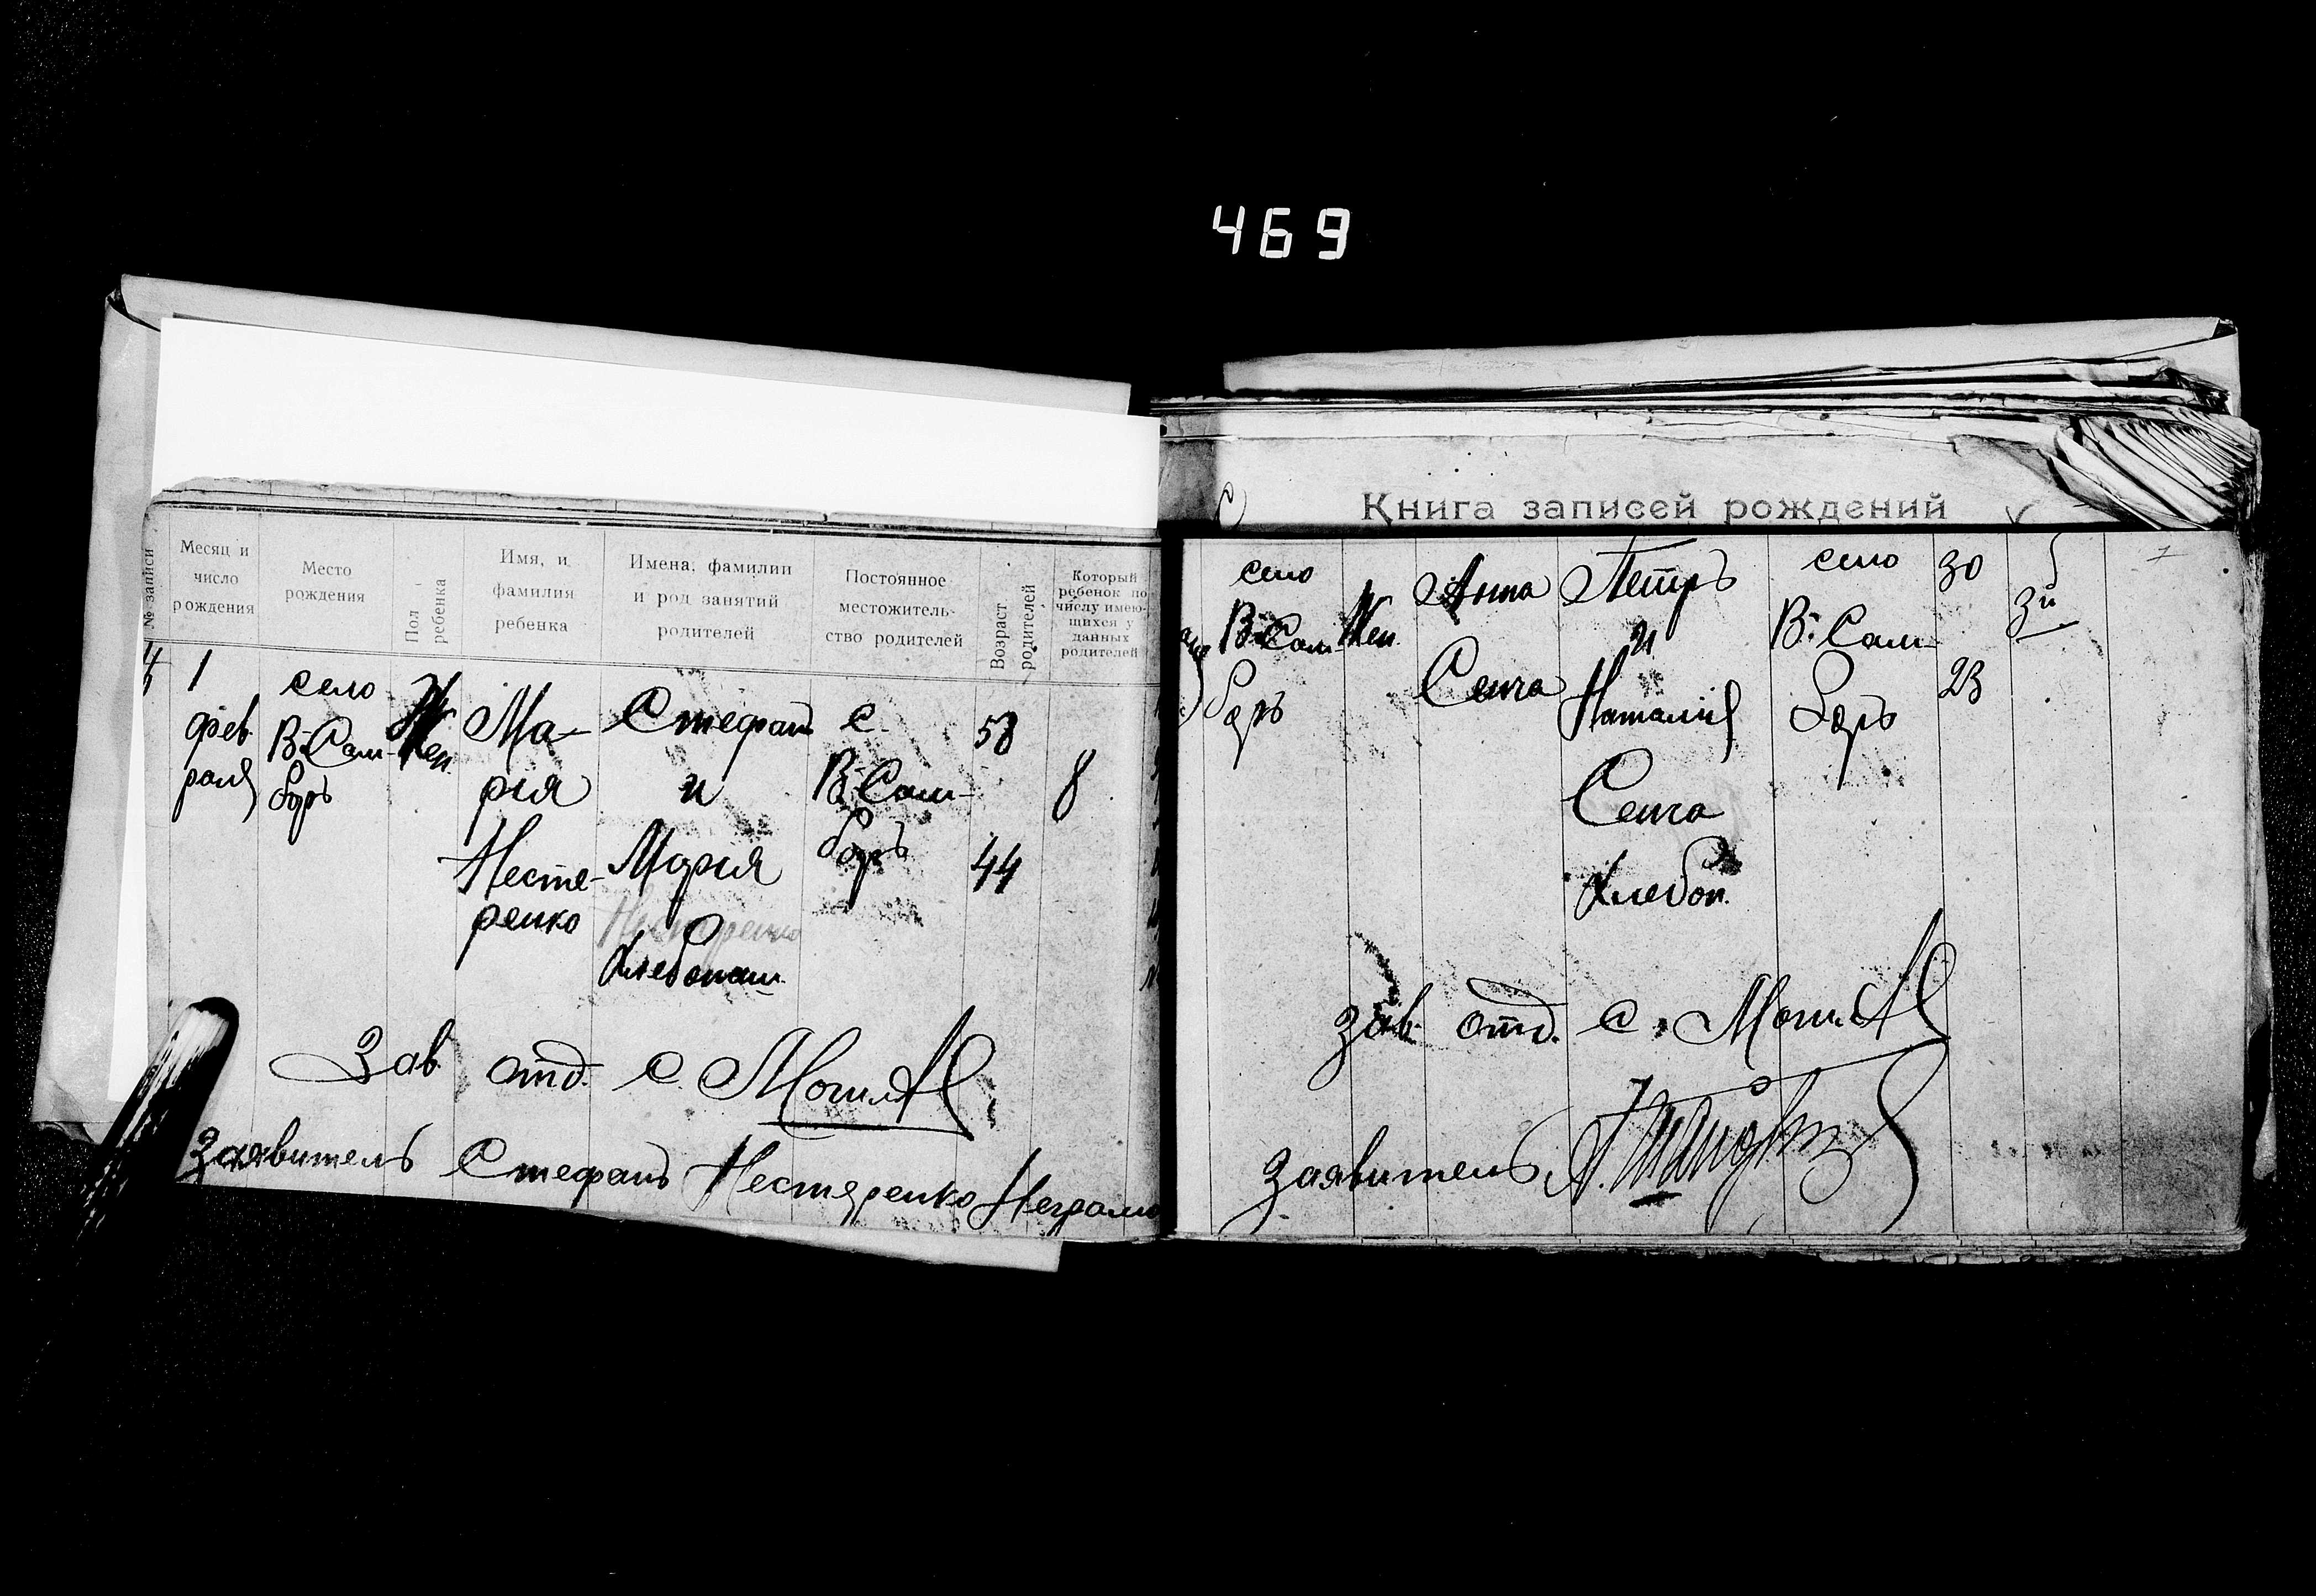 469
№ записи
Месяц и число рождения
Место рождения
Пол ребенка
Имя, и фамилия ребенка
Имена, фамилии и род занятий родителей
Постоянное местожительство родителей
Возраст родителей
Который ребенок по числу имеющихся у данных родителей
1
фев
раля
село
В. Сам-
боръ
Жен.
Ма-
рия
Несте-
ренко
Стефан
и
Мария
Хлебопаш.
с.
В. Сам-
боръ
58
44
8
Зав. отд. С.
Заявитель Стефанъ Нестеренко
Книга записей рождений
село
В. Сам-
боръ
Жен.
Анна
Петръ
и
Наталия
Хлебоп.
село
В. Сам-
боръ
30
23
3й
Зав. отд. С.
Заявитель